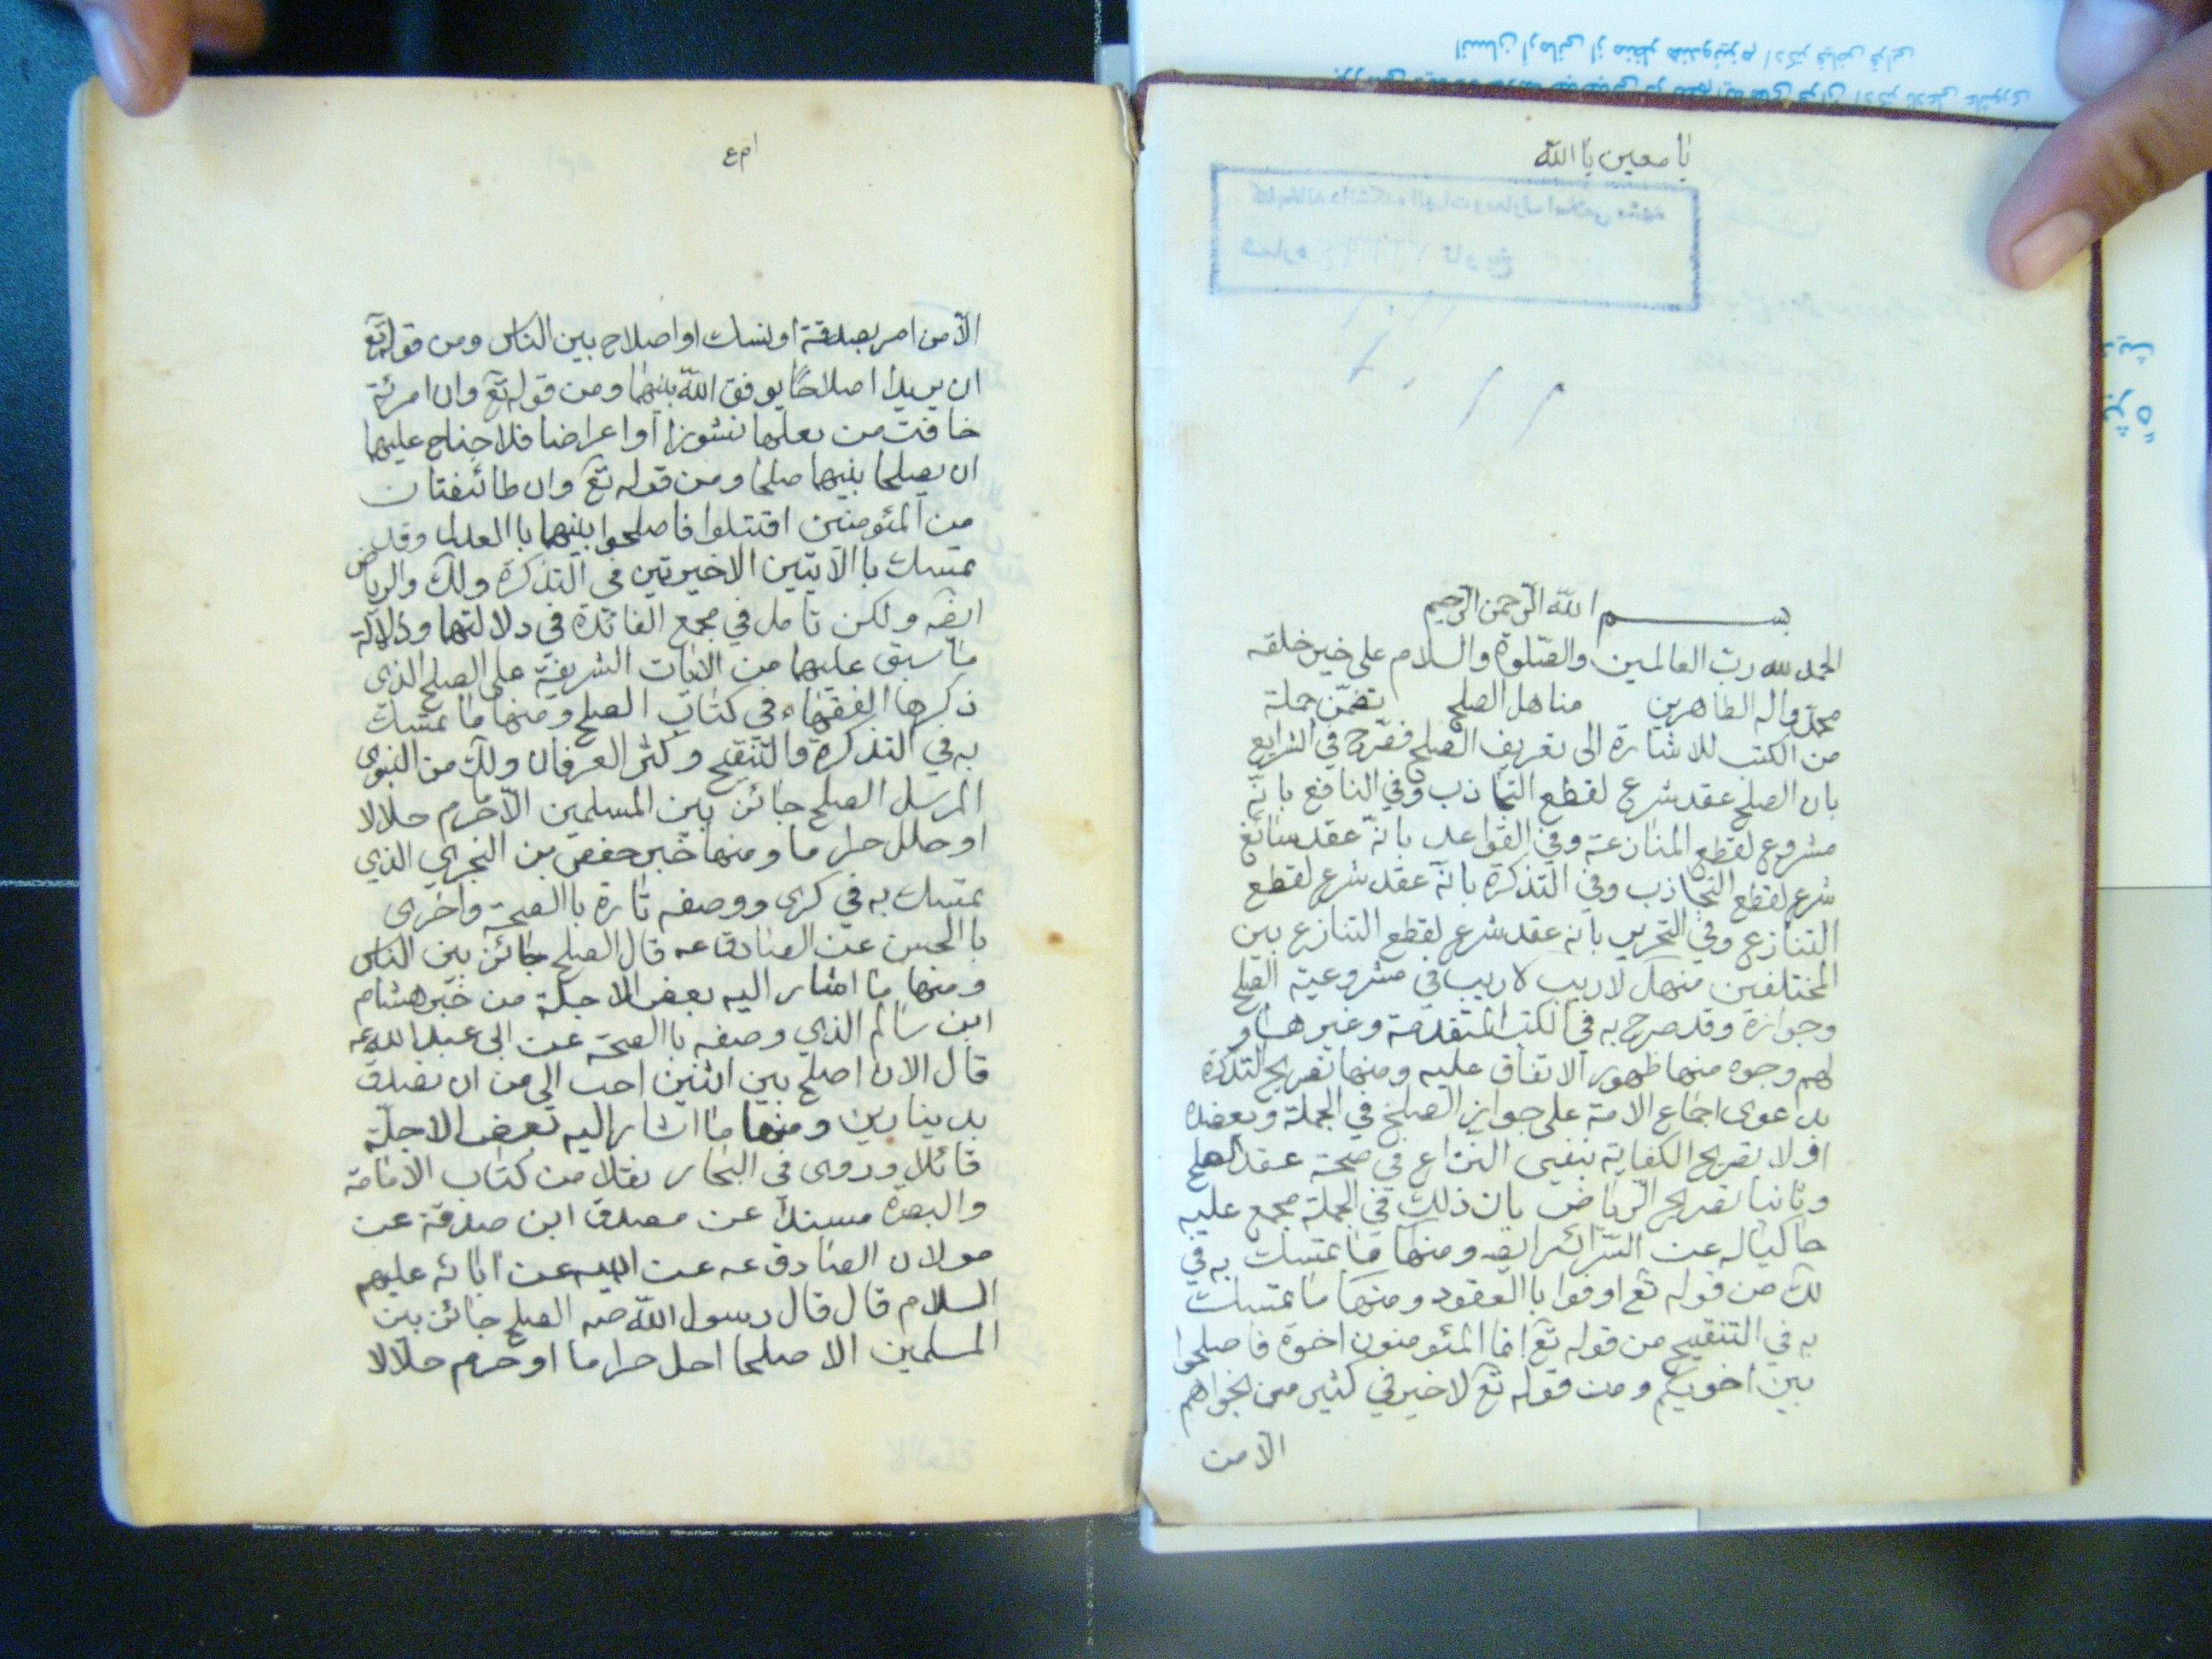 يا معين يا الله
بسم الله الرحمن الرحيم
الحمد لله رب العالمين والصّلوة والسلام على خير خلقه
محمّد واله الطاهرين مناهل الصلح تضمّن جملة
من الكتب للاشارة الى تعريف الصلح فصّرح في الشرايع
بان الصلح عقد شرع لقطع التجاذب وفي النافع بانّه
مشروع لقطع المنازعة وفي القواعد بانّه عقد سائغ
شرع لقطع التجاذب وفي التذكرة بانّه عقد شرع لقطع
التنازع وفي التحرير بانه عقد شرع لقطع التنازع بين
المختلفين منهل لاريب لاريب في مشروعية الصلح
وجوازة وقد صرح به في الكتب المتقدمة وغيرها و
لهم وجوه منها ظهور الاتفاق عليه ومنها تصريح التذكرة
بدعوى اجماع الامة على جواز الصلح في الجملة ويعضده
اولا تصريح الكفاية بنفى النزاع في صحة عقد الصلح
وثانيا تصريح الرّياض بان ذلك في الجملة مجمع عليه
حاكياله عن السّرائر ايضه ومنها ما تمسك به في
لك من قوله تع اوفوا باالعقود ومنها ما تمسك
به في التنقيح من قوله تع انما المئومنون اخوة فاصلحوا
بين اخويكم ومن قوله تع لاخير في كثير من نجواهم
الامن
الامن امر بصدقة اونسك او اصلاح بين الناس ومن قوله تع
ان يريدا اصلاحًا يوفق الله بينهما ومن قوله تع وان امرئة
خافت من بعلها نشوزا او اعراضا فلا جناح عليهما
ان يصلحا بينهما صلحا ومن قوله تع وان طائفتان
من المئومنين اقتتلوا فاصلحوا بينهما باالعدل وقد
تمسك باالآيتين الاخيرتين في التذكرة ولك والرياض
ايضه ولكن تامل في مجمع الفائدة في دلالتهما ودلالة
ما سبق عليهما من الايات الشريفة على الصلح الذي
ذكرها الفقهاء في كتاب الصلح ومنها ما تمسك
به في التذكرة والتنقيح وكنز العرفان ولك من النبوى
المرسل الصلح جائز بين المسلمين الا ما حرم حلالا
او حلل حراما ومنها خبر حفص بن النجري الذي
تمسك به في كرى ووصفه تارة باالصحة واخرى
باالحسن عن الصادق عه قال الصلح جائز بين الناس
ومنها ما اشار اليه بعض الاجلة من خبر هشام
ابن سالم الذي وصفه باالصحة عن ابى عبد الله عه
قال الان اصلح بين اثنين احب الى من ان تصدق
بدينارين ومنها ما اشار اليه بعض الاجلّة
قائلا وروى في البحار نقلا من كتاب الامامة
والبصرة مسندا عن مصدق ابن صدقة عن
مولان الصادق عه عن ابيه عن ابائه عليهم
السلام قال قال رسول الله صه الصلح جائز بين
المسلمين الا صلحا احل حراما او حرم حلالا